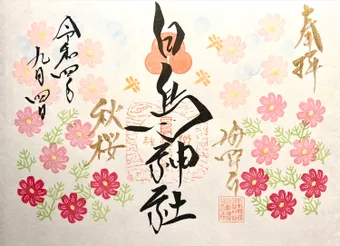 奉拝
白鳥神社
秋桜
令和四年
九月四日